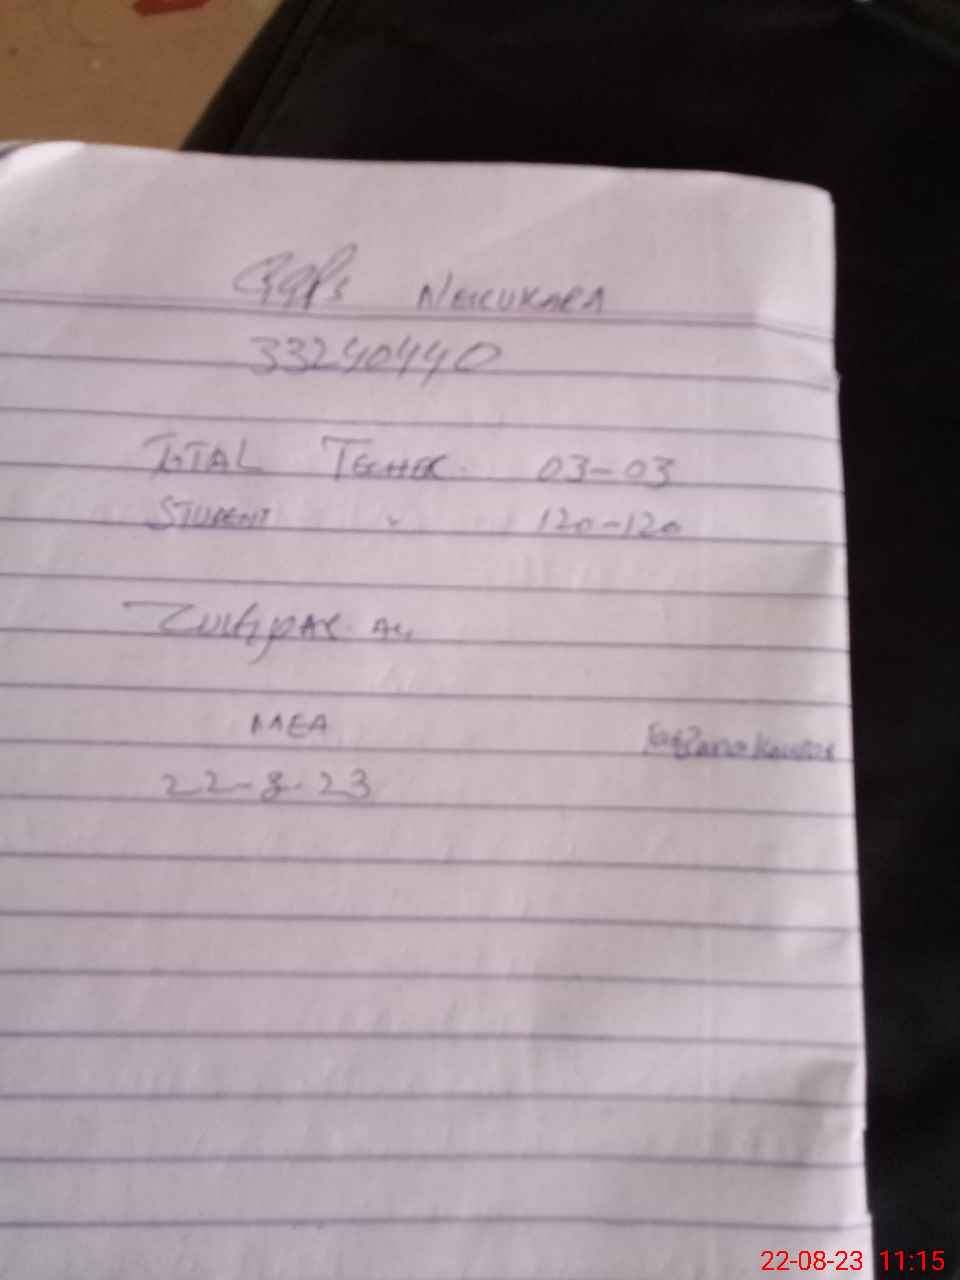 GGPS
33240440
TOTAL TECHER. 03-03
STUDENT " 120-120
MEA
22-8-23
22-08-23 11:15